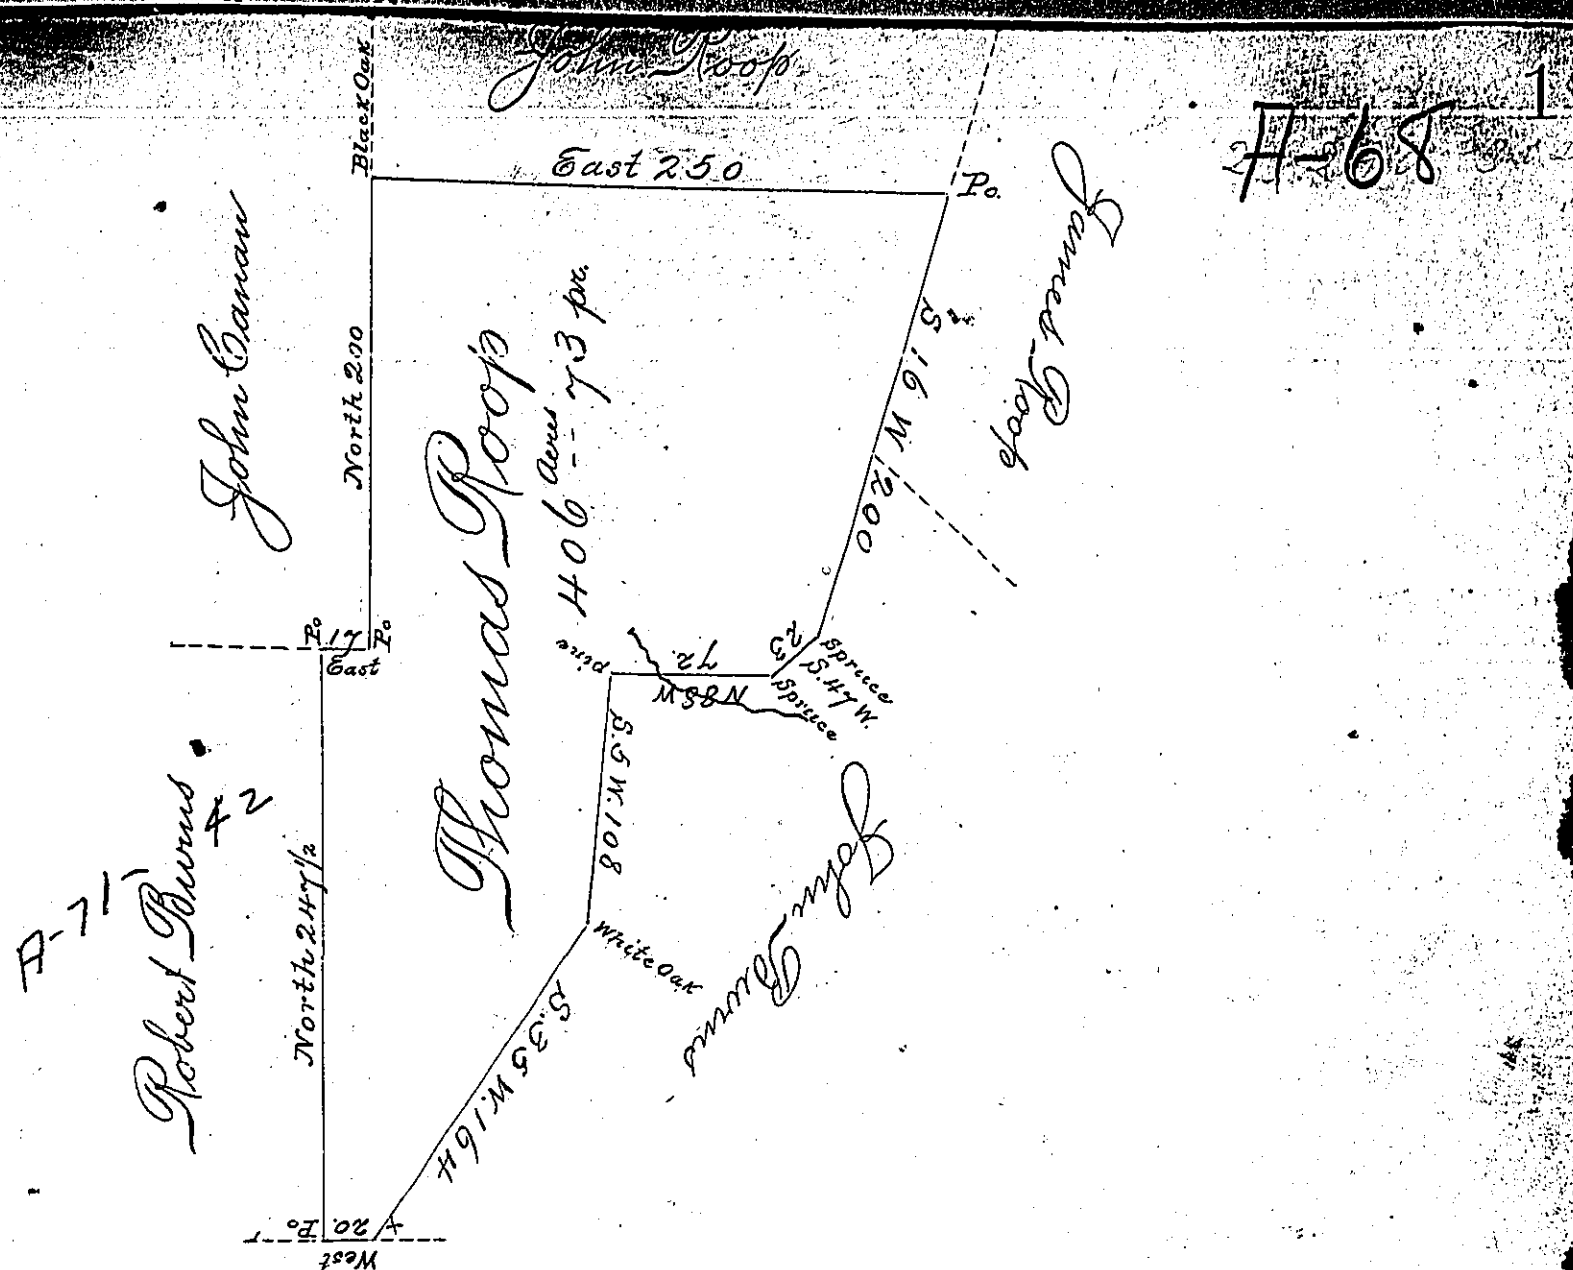 John Roop
1
A-68
Black Oak
East 250
Po.
John Canan
North 200
Thomas Roop
406 Acres -- 73 pr.
S 16 W 200
James Roop
Po
17
Po
East
pine
72.
N 88 W
23
Spruce
S. 47 W.
Spruce
Robert Burns
42
A-71
North 247 1/2
S. 5 W. 108
White Oak
John Burns
S. 35 W. 164
Po
20.
West